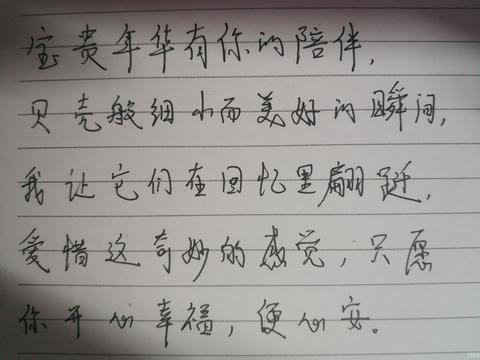 宝贵年华有你的陪伴,
贝壳般细小而美好的瞬间,
我让它们在回忆里翩跹,
爱惜这奇妙的感觉,只愿
你开心幸福,便心安。